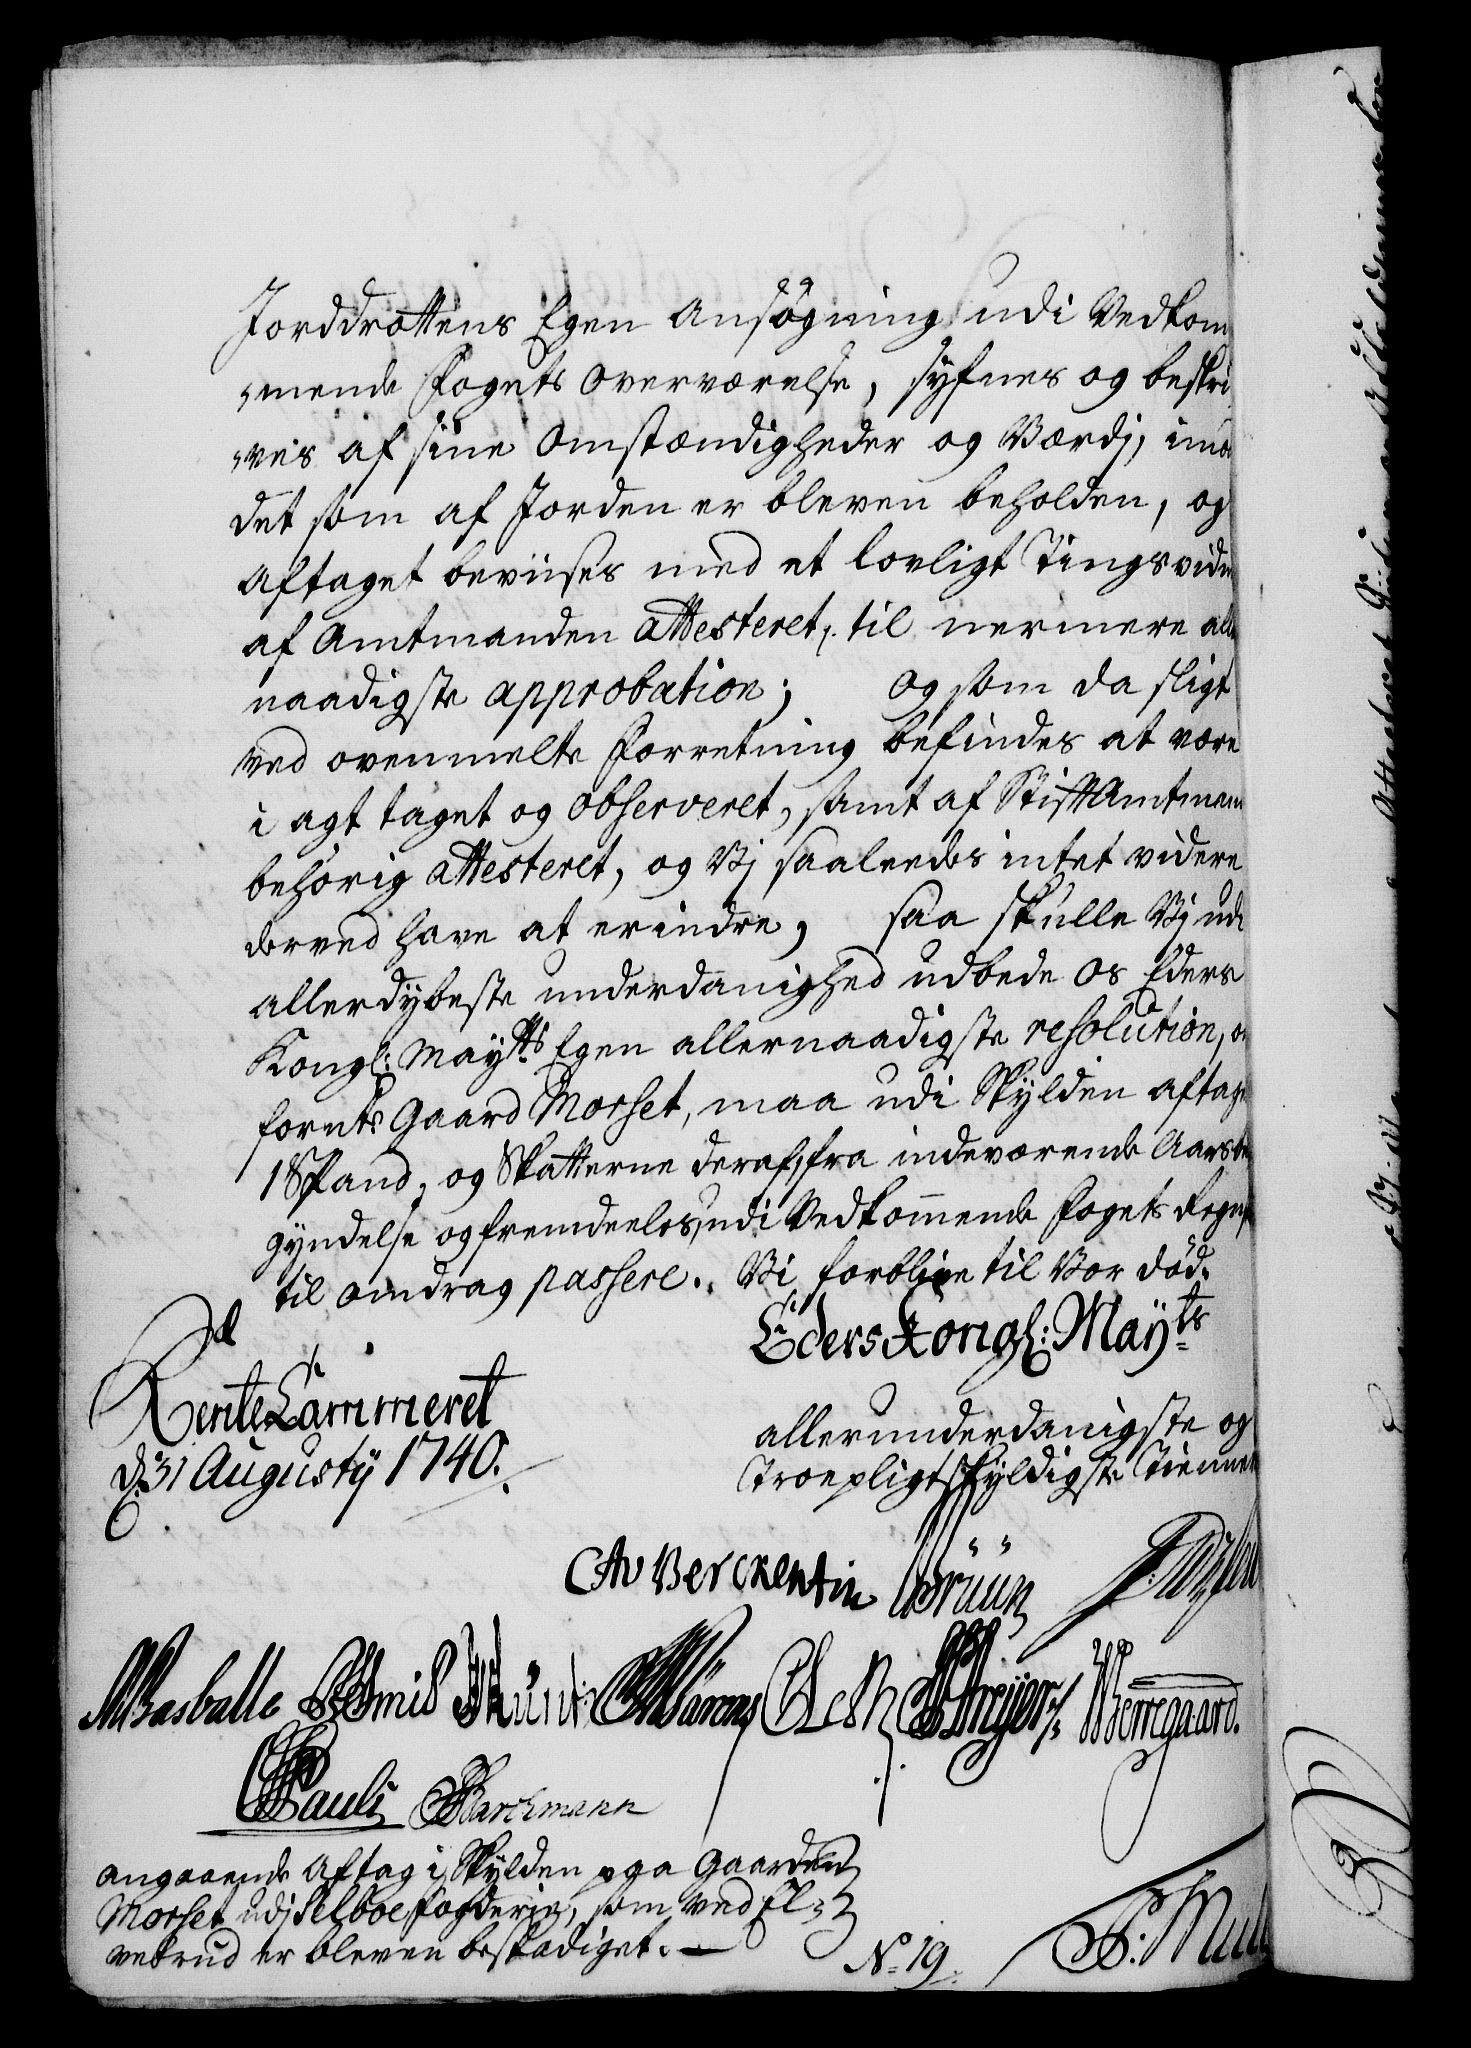 Jorddrottens Egen Ansøgning udi Vedkom
mende Fogets Overværelse, syfnes og beskri
ves af sine Omstændigheder og Værdj, imod
det som af Jorden er bleven beholden, og
Aftaget beviises med et lovligt Tingsvidne
af Amtmanden attesteret, til nermere aller
naadigste approbation; Og som da sligt
ved ovenmelte Forretning befindes at være
i agt taget og observeret, samt af StiftAmtmand
behörig attesteret, og Vj saaleedes intet videre
derved have at erindre, saa skulle Vj udi
allerdybeste underdanighed udbede os Eders
Kongl: Maytts Egen allernaadigste resolution, om
fornte Gaard Morset, maa udi Skylden aftages
1 Spand, og Skatterne deraf, fra indeværende Aars be
gyndelse og fremdeeles, udi Vedkommende Fogets Regnsk
til omdrag passere. Vi forblive til Vor död.
Eders Kongl: Mayts
RenteCammeret
d. 31 Augusty 1740.
allerunderdanigste og
Troepligtskyldigste Tienner
CAv Berckentin Brüün
Basballe
Herregaard.
Pauli Barchmann
angaaende Aftag i Skylden paa Gaarden
Morset udj Selboe Fogderie, som ved El-
vebrud er bleven beskadiget.
No 19.